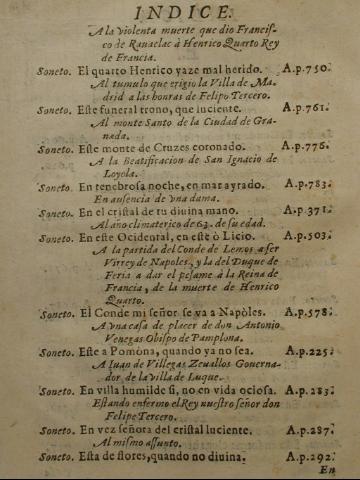 INDICE.
A la violenta muerte que dio Francis-
co de Rauaelac à Henrico Quarto Rey
de Francia.
Soneto. El quarto Henrico yaze mal herido. A.p.750.
Al tumulo que erigio la Villa de Ma-
drid a las honras de Felipo Tercero.
Soneto. Este funeral trono, que luciente. A.p.761.
Al monte Santo de la Ciudad de Gra-
nada.
Soneto. Este monte de Cruzes coronado. A.p.776.
A la Beatificacion de San Ignacio de
Loyola.
Soneto. En tenebrosa noche, en mar ayrado. A.p.783.
En ausencia de vna dama.
Soneto. En el cristal de tu diuina mano. A.p.371.
Al año climaterico de 63. de su edad.
Soneto. En este Ocidental, en este ò Licio. A.p.503.
A la partida del Conde de Lemos a ser
Virrey de Napoles, y la del Duque de
Feria a dar el pesame à la Reina de
Francia, de la muerte de Henrico
Quarto.
Soneto. El Conde mi señor se va a Napòles. A.p.578.
A vna casa de placer de don Antonio
Venegas Obispo de Pamplona.
Soneto. Este a Pomona, quando ya no sea. A.p.225.
A Iuan de Villegas Zeuallos Gouerna-
dor de la villa de Luque.
Soneto. En villa humilde si, no en vida ociosa. A.p.283.
Estando enfermo el Rey nuestro señor don
Felipe Tercero.
Soneto. En vez señora del cristal luciente. A.p.287.
Al mismo assunto.
Soneto. Esta de flores, quando no diuina. A.p.292.
En